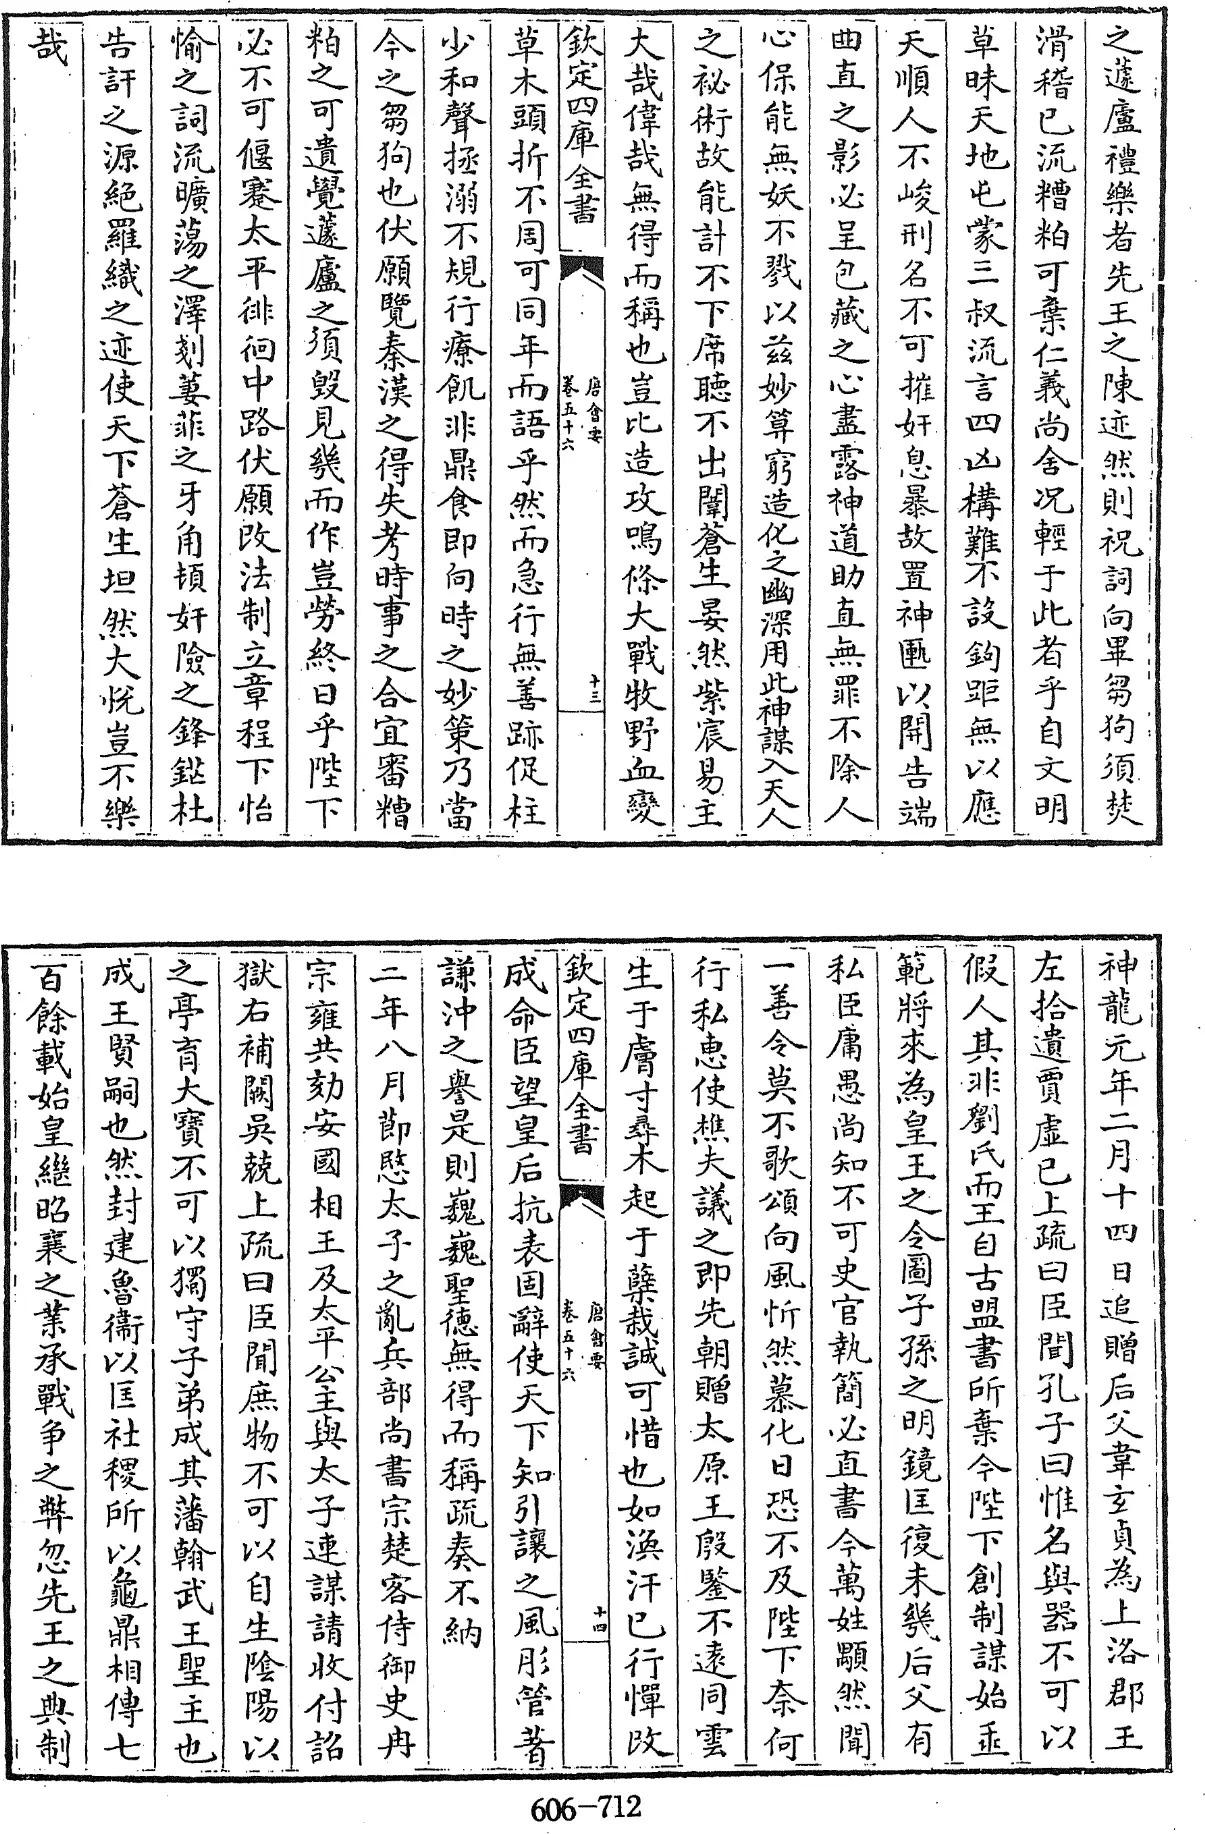 之蘧廬禮樂者先王之陳迹然則祝詞向畢芻狗須焚
滑稽已流糟粕可棄仁義尚舍况輕于此者乎自文明
草昧天地屯蒙三叔流言四凶構難不設鉤距無以應
天順人不峻刑名不可摧奸息暴故置神匭以開告端
曲直之影必呈包藏之心盡露神道助直無罪不除人
心保能無妖不戮以兹妙算窮造化之幽深用此神謀入天人
之祕術故能計不下席聽不出闈蒼生晏然紫宸易主
大哉偉哉無得而稱也豈比造攻鳴條大戰牧野血變
欽定四庫全書
唐會要
卷五十六
十三
草木頭折不周可同年而語乎然而急行無善跡促柱
少和聲拯溺不規行療飢非鼎食即向時之妙策乃當
今之芻狗也伏願覽秦漢之得失考時事之合宜審糟
粕之可遺覺蘧廬之須毁見幾而作豈勞終日乎陛下
必不可偃蹇太平徘徊中路伏願改法制立章程下怡
愉之詞流曠蕩之澤剗萋菲之牙角頓奸險之鋒鋩杜
告訐之源絶羅織之迹使天下蒼生坦然大悅豈不樂
哉
神龍元年二月十四日追贈后父韋玄貞為上洛郡王
左拾遺賈虛已上疏曰臣聞孔子曰惟名與器不可以
假人其非劉氏而王自古盟書所棄今陛下創制謀始垂
範將來為皇王之令圖子孫之明鏡匡復未幾后父有
私臣庸愚尚知不可史官執簡必直書今萬姓顒然聞
一善令莫不歌頌向風忻然慕化日恐不及陛下奈何
行私惠使樵夫議之即先朝贈太原王殷鑒不遠同雲
生于膚寸尋木起于蘖栽誠可惜也如渙汗已行憚改
欽定四庫全書
唐會要
卷五十六
十四
成命臣望皇后抗表固辭使天下知引讓之風彤管著
謙沖之譽是則巍巍聖德無得而稱疏奏不納
二年八月節愍太子之亂兵部尚書宗楚客侍御史冉
宗雍共劾安國相王及太平公主與太子連謀請收付詔
獄右補闕吳兢上疏曰臣聞庶物不可以自生陰陽以
之亭育大寶不可以獨守子弟成其藩翰武王聖主也
成王賢嗣也然封建魯衞以匡社稷所以龜鼎相傳七
百餘載始皇繼昭襄之業承戰争之弊忽先王之典制
606-712